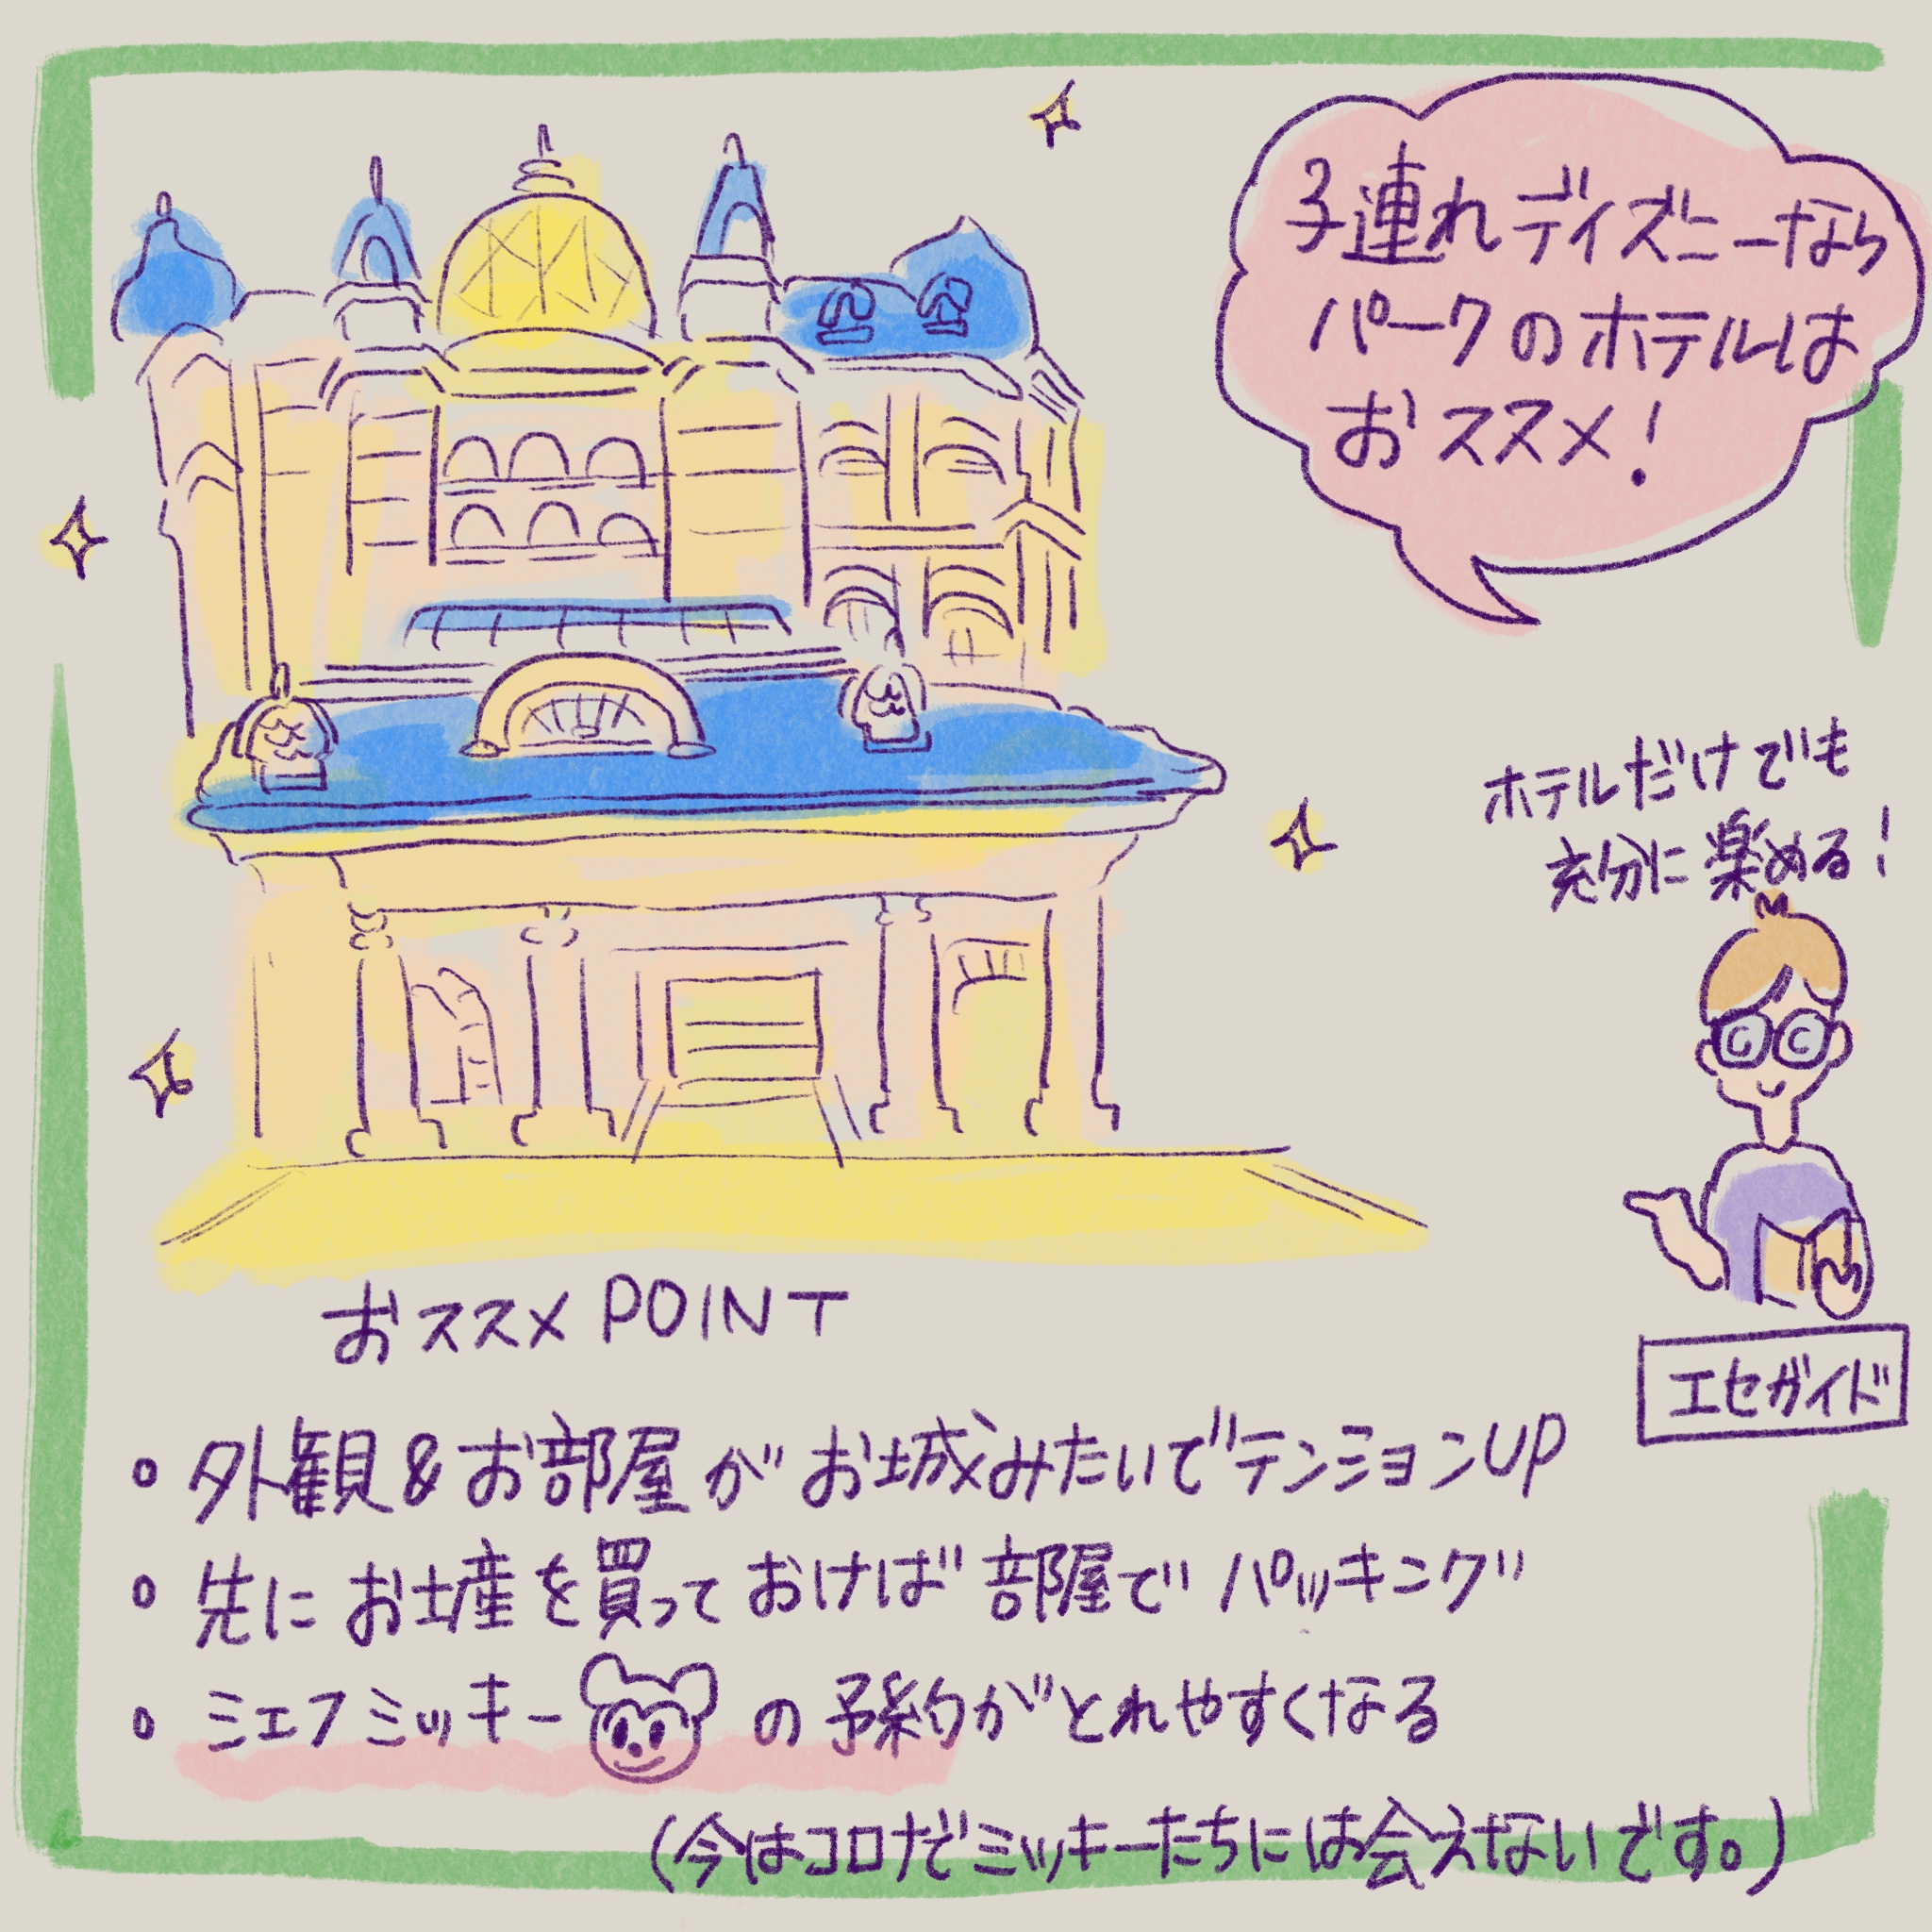 子連れディズニーなら
パークのホテルは
おススメ！
ホテルだけでも
充分に楽める！
エセガイド
おススメPOINT
。外観&お部屋がお城みたいでテンションUP
。先にお土産を買っておけば部屋でパッキング
。ミェフミッキーの予約がとれやすくなる
（今はコロナでミッキーたちには会えないです。）